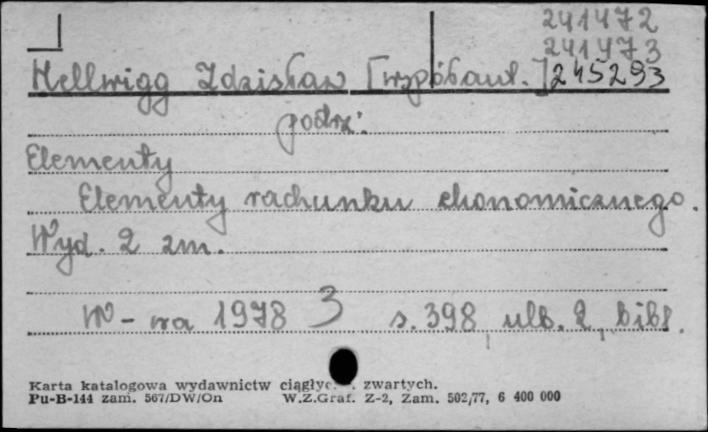 241472
241473
Hellwigg Zdzisław [współaut.] 245293
podrz:
Elementy
Elementy rachunku ekonomicznego.
Wyd. 2 zm.
W-wa 1978 3 s. 398, ulb. 2, bibl.
Karta katalogowa wydawnictw ciągłyc zwartych.
Pu-B-144 zam. 567/DW/On W.Z.Graf. Z-2, Zam. 502/77, 6 400 000